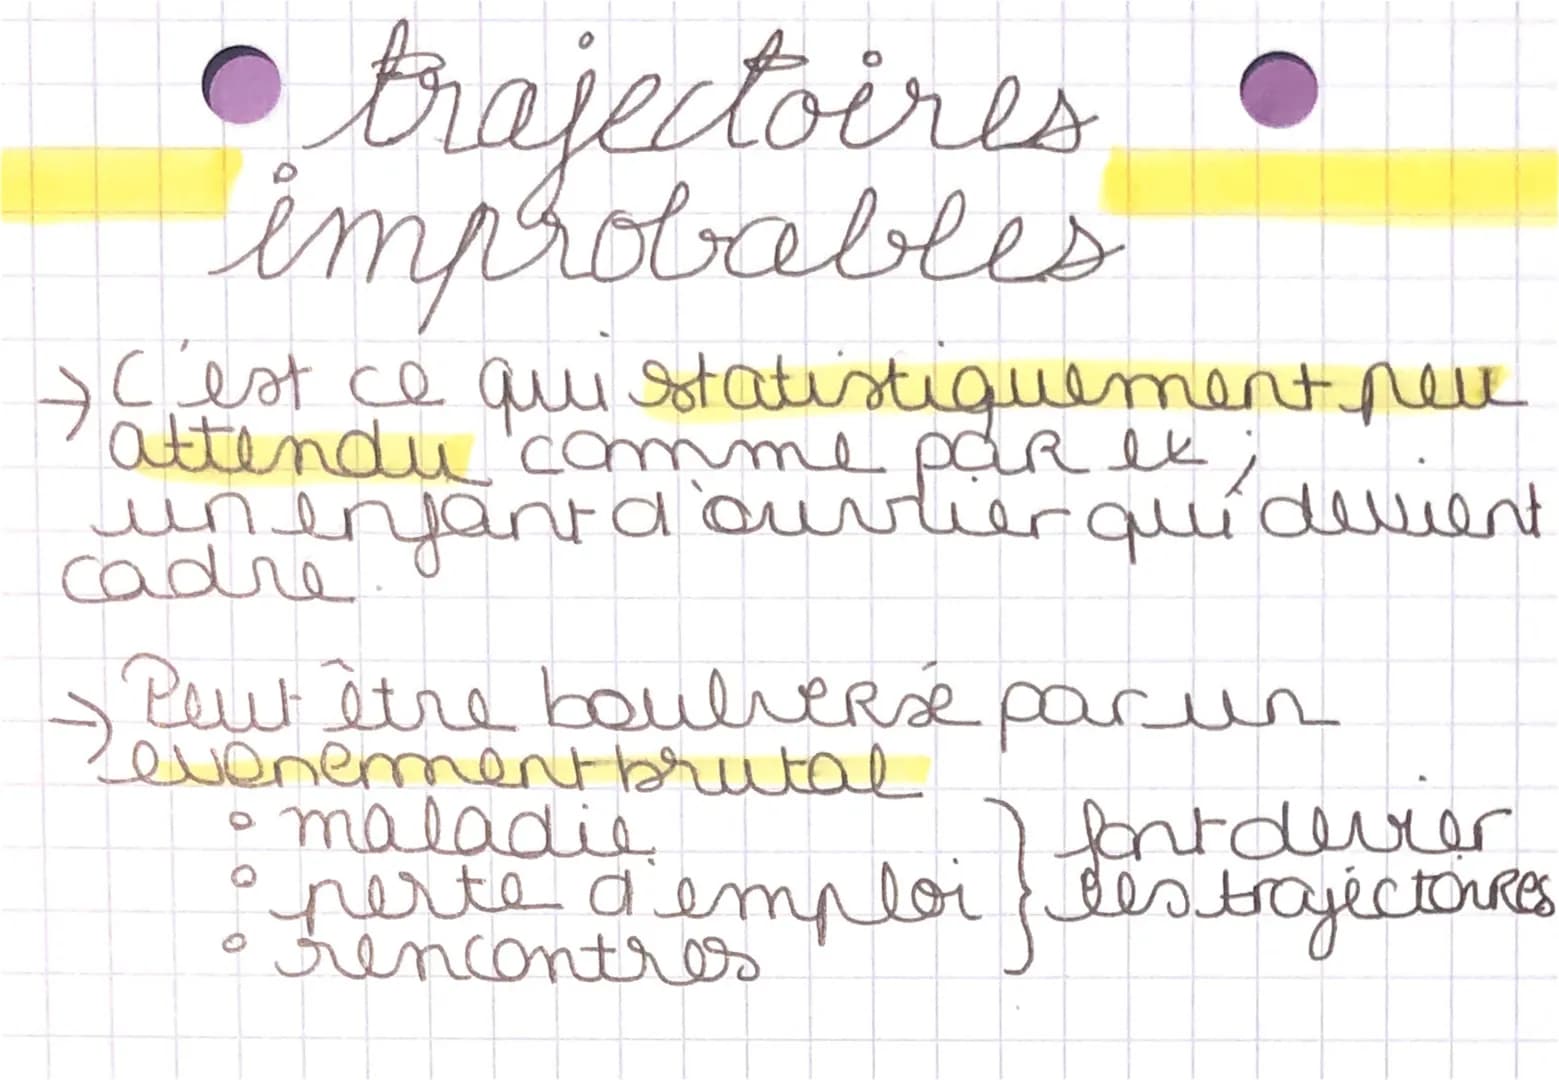 trajectoires
improbables
→ C'est ce qui statistiquement peu
attendu comme par ex ;
un enfant d'ouvrier qui devient
cadre.
→ Peut être boulversé par un
evenement brutal
° maladie
° perte d'emploi
° rencontres
} font devier
les trajectoires